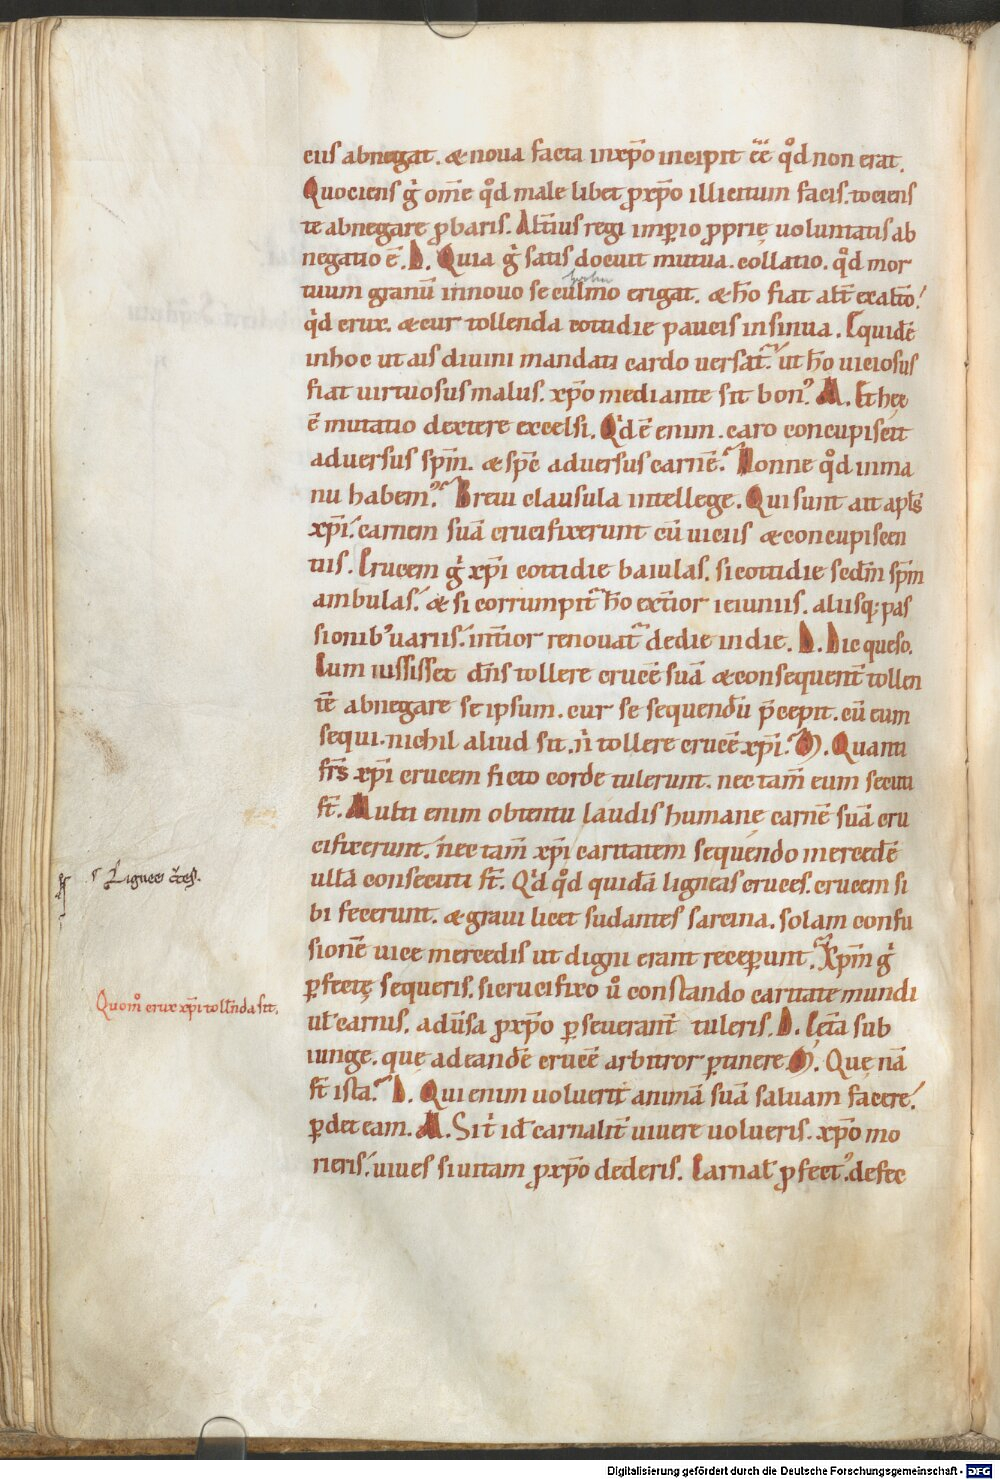 eius abnegat. & noua facta inxp̄o incipit eḗ qđ non erat.
Quociens g̊ om̄e qđ male libet ꝓxp̄o illicitum facis. tociens
te abnegare ꝓbaris. Alt̄ius regi imꝑio ꝓprię uoluntatis ab
negatio ē. D. Quia g̊ satis docuit mutua collatio. qđ mor
tuum granū innouo se culmo erigat. & hō fiat alt̄ exaltō!
qd crux. & cur tollenda cottidie paucis insinua. Equidē
inhoc ut ais diuini mandati cardo uersat᷑. ut hō uiciosus
fiat uirtuosus malus. xp̄o mediante sit bonꝰ. M. Et hęc
ē mutatio dextere excelsi. Qd ē enim. caro concupiscit
aduersus sp̄m. & sp̄c aduersus carnē. Nonne qđ inma
nu habemꝰ. Breui clausula intellege. Qui sunt ait apl̄s
xp̄i. carnem suā crucifixerunt cū uiciis & concupiscen
tiis. Crucem g̊ xp̄i cottidie baiulas. si cottidie secdm̄ sp̄m
ambulas. & si corrumpit᷑ hō ext̄ior ieiuniis. aliisq; pas
sionibꝰ uariis. int̄ior renouat᷑ dedie indie. D. Dic queso.
Cum iussisset dn̄s tollere crucē suā & consequent̄ tollen
tē abnegare se ipsum. cur se sequendū p̄cepit. cū eum
sequi. nichil aliud sit. n̄ tollere crucē xp̄i. M. Quanti
fr̄s xp̄i crucem ficto corde tulerunt. nec tam̄ eum secuti
st̄. Multi enim obtentu laudis humanę carnē suā cru
cifixerunt. nec tam̄ xp̄i caritatem sequendo mercedē
ullā consecuti st̄. Qd qđ quidā ligneas cruces. crucem si
bi fecerunt. & graui licet sudantes sarcina. solam confu
sionē uice mercedis ut digni erant receperunt. Xp̄m g̊
ꝑfectę sequeris. si crucifixo ů constando caritate mundi
ul̄ carnis. adūsa ꝓxp̄o ꝑseuerant̄ tuleris. D. Cet̄a sub
iunge. que adeandē crucē arbitror ꝑtinere. M. Quę nā
st̄ ista. D. Qui enim uoluerit animā suā saluam facere.
ꝑdet eam. M. Sit id̄ carnalit̄ uiuere uolueris. xp̄o mo
rieris. uiues si uitam ꝓxp̄o dederis. Carnal̄ ꝓfectꝰ. defec
Quom̊ crux xp̄i tollenda sit.
Digitalisierung gefördert durch die Deutsche Forschungsgemeinschaft - DFG